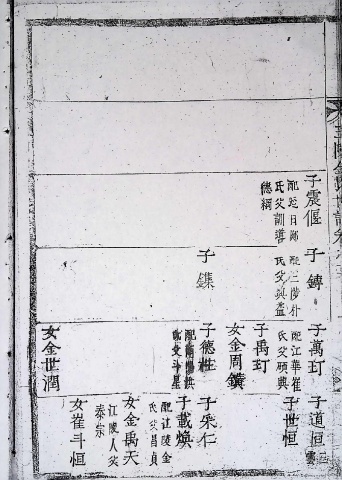 子震偃
配延日鄭
氏父訓導
德綱
子鏄
配三陟朴
氏父
子鏶
子萬玎
配江華崔
氏父碩興
子禹玎
女金周鑌
子德柱
氏父斗星
女金世潤
子道恒
子世恒
子采仁
子載煥
配江陵金
氏父昌貞
女金禹天
江陵人父
泰宗
女崔斗恒